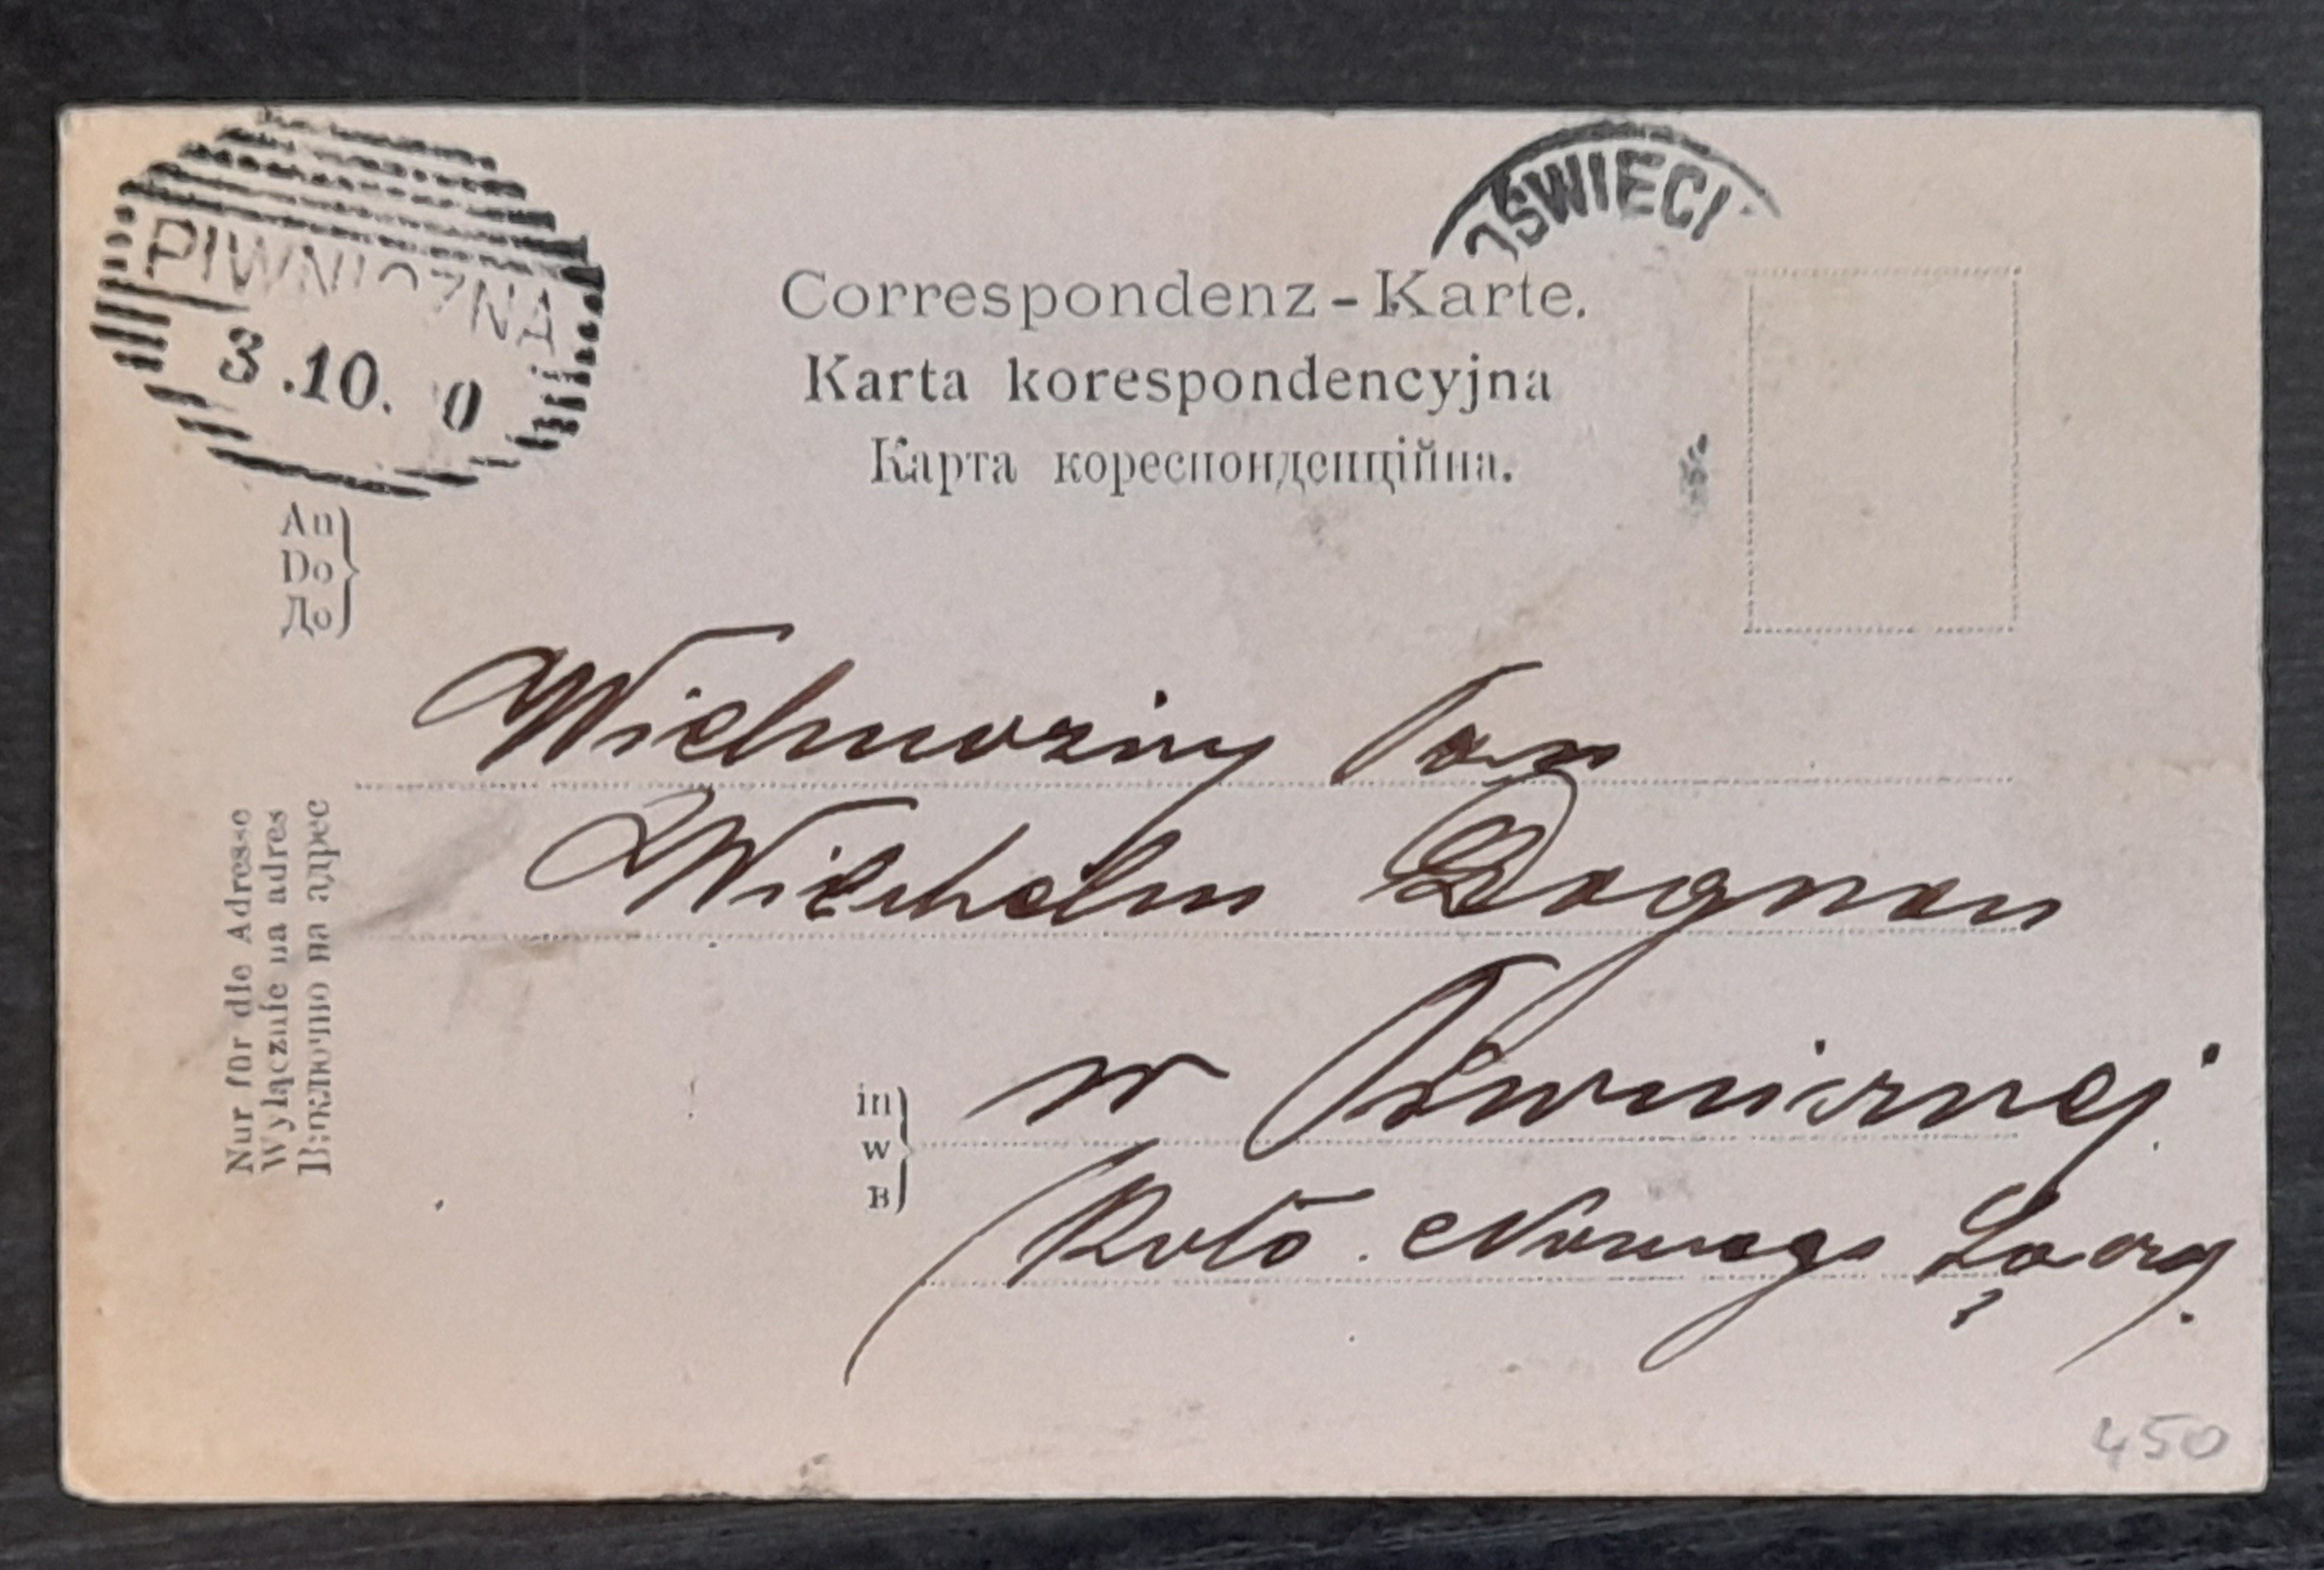 PIWNICZNA
3.10. 0
OŚWIĘCI
Correspondenz-Karte.
Karta korespondencyjna
Карта кореспонденційна.
An
Do
До
Wielmożny Pan
Wilhelm Dognan
in
w
в
w Piwnicznej
Koło Nowego Sącza.
Nur für die Adresse
Wyłącznie na adres
Виключно на адрес
450